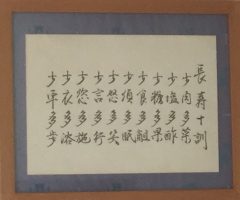 長寿十訓
少肉多菜
少塩多酢
少糖多果
少食多齟
少煩多眠
少怒多笑
少言多行
少慾多施
少衣多浴
少車多歩